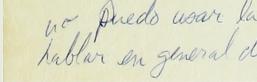 no puedo usar la
hablar en general d